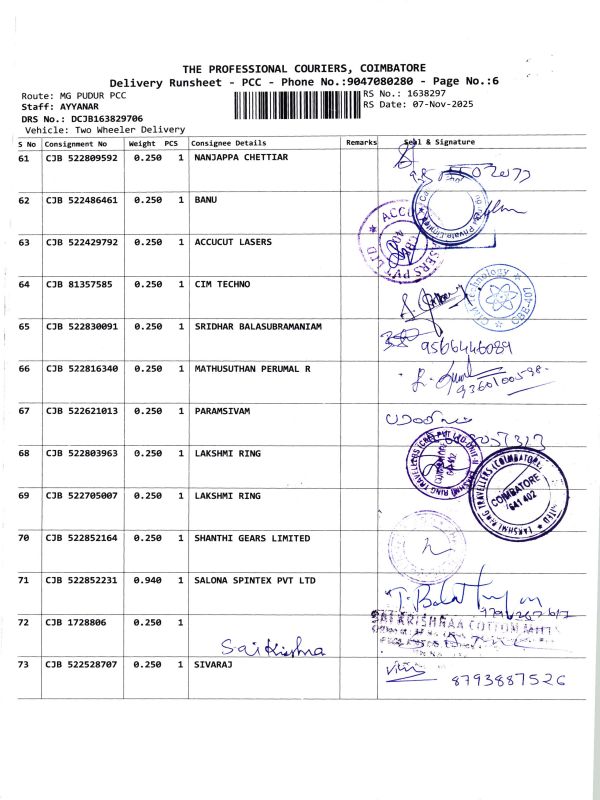 THE PROFESSIONAL COURIERS, COIMBATORE
Delivery Runsheet - PCC - Phone No.:9047080280 - Page No.:6
Route: MG PUDUR PCC RS No.: 1638297
Staff: AYYANAR RS Date: 07-Nov-2025
DRS No.: DCJB163829706
Vehicle: Two Wheeler Delivery
S No Consignment No Weight PCS Consignee Details Remarks Seal & Signature
61 CJB 522809592 0.250 1 NANJAPPA CHETTIAR
62 CJB 522486461 0.250 1 BANU
63 CJB 522429792 0.250 1 ACCUCUT LASERS
64 CJB 81357585 0.250 1 CIM TECHNO
CBE-407
65 CJB 522830091 0.250 1 SRIDHAR BALASUBRAMANIAM
9566446089
66 CJB 522816340 0.250 1 MATHUSUTHAN PERUMAL R
67 CJB 522621013 0.250 1 PARAMSIVAM
68 CJB 522803963 0.250 1 LAKSHMI RING
COIMBATORE
641 402
69 CJB 522705007 0.250 1 LAKSHMI RING
70 CJB 522852164 0.250 1 SHANTHI GEARS LIMITED
71 CJB 522852231 0.940 1 SALONA SPINTEX PVT LTD
72 CJB 1728806 0.250 1
SaiKrishna
73 CJB 522528707 0.250 1 SIVARAJ
8793887526